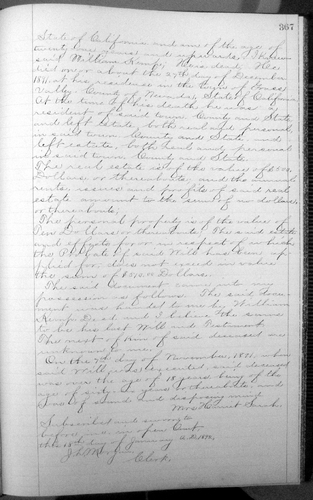 307
State of California and am of the age of
twenty one years and upwards. I knew
said William Kemp. He is dead. He
died on or about the 27th day of December
1891 at his residence in the town of Grass
Valley County of Nevada, State of California
At the time of his death, he was a
resident of said town County and State
and left estate both real and personal
in said town County and State and
left estate, both real and personal
in said town, County and State.
The real estate is of the value of
Dollars or thereabouts, and the annual
rents, issues and profits of said real
estate amount to the sum of no dollars,
or thereabouts.
The personal property is of the value of
Ten Dollars or thereabouts. The said estate
and effects for or in respect of which
the Probate of said Will has been ap-
plied for does not exceed in value
the sum of Dollars.
The said document came into my
possession as follows. The said docu-
ment was handed to me by William
Kemp Dec'd and I believe the same
to be his last Will and Testament.
The next of kin of said deceased are
unknown to
On the 7th day of November, 1891, when
said Will was executed, said deceased
was over the age of 18 years being of the
age of sixty years or thereabouts and
was of sound and disposing mind
Mrs
Subscribed and sworn to
before me in open Court
this 18th day of January A.D. 1892,
Clerk.